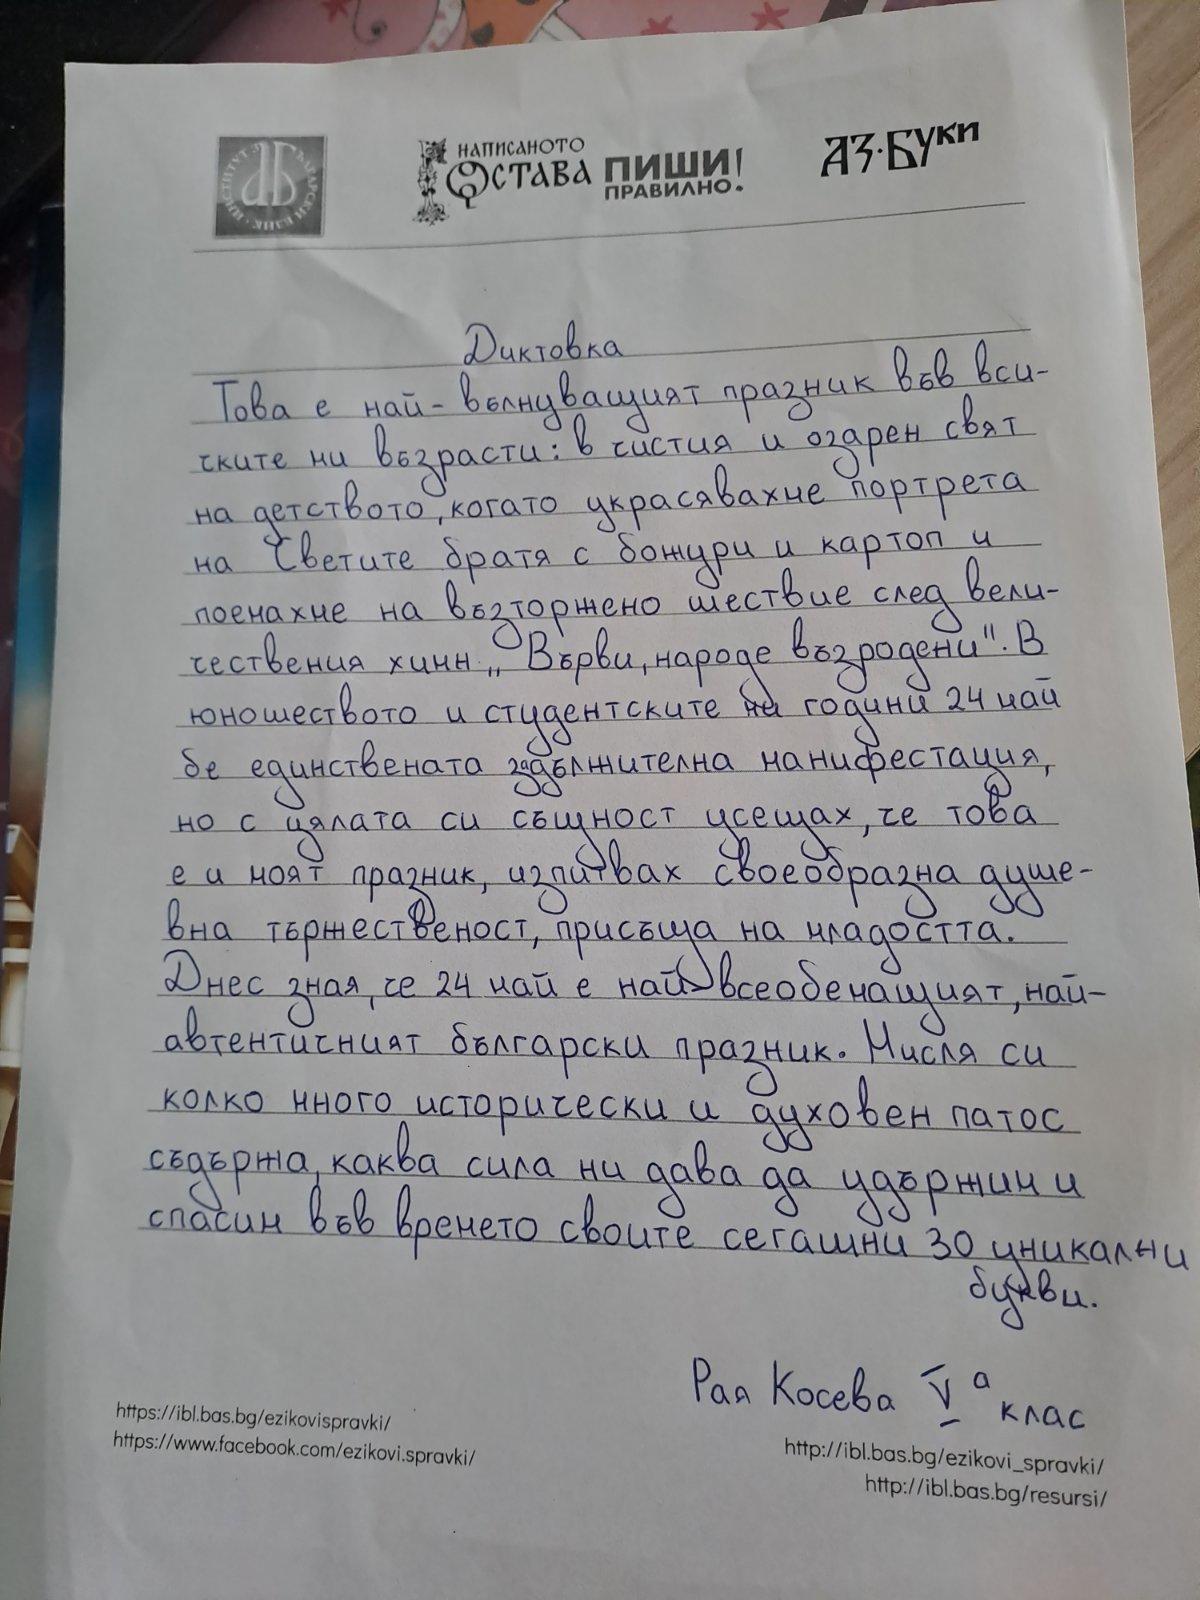 ИНСТИТУТ ЗА БЪЛГАРСКИ ЕЗИК
НАПИСАНОТО
ОСТАВА
ПИШИ
ПРАВИЛНО!
АЗ·БУКИ
Диктовка
Това е най-вълнуващият празник във вси-
чките ни възрасти: в чистия и озарен свят
на детството, когато украсявахме портрета
на Светите братя с божури и картоп и
поемахме на възторжено шествие след вели-
чествения химн „Върви, народе възродени". В
юношеството и студентските ни години 24 май
бе единствената задължителна манифестация,
но с цялата си същност усещах, че това
е и моят празник, изпитвах своеобразна душе-
вна тържественост, присъща на младостта.
Днес зная, че 24 май е най-всеобемащият, най-
автентичният български празник. Мисля си
колко много исторически и духовен патос
съдържа, каква сила ни дава да удържим и
спасим във времето своите сегашни 30 уникални
букви.
Рая Косева V а клас
https://ibl.bas.bg/ezikovispravki/
https://www.facebook.com/ezikovi.spravki/
http://ibl.bas.bg/ezikovi_spravki/
http://ibl.bas.bg/resursi/